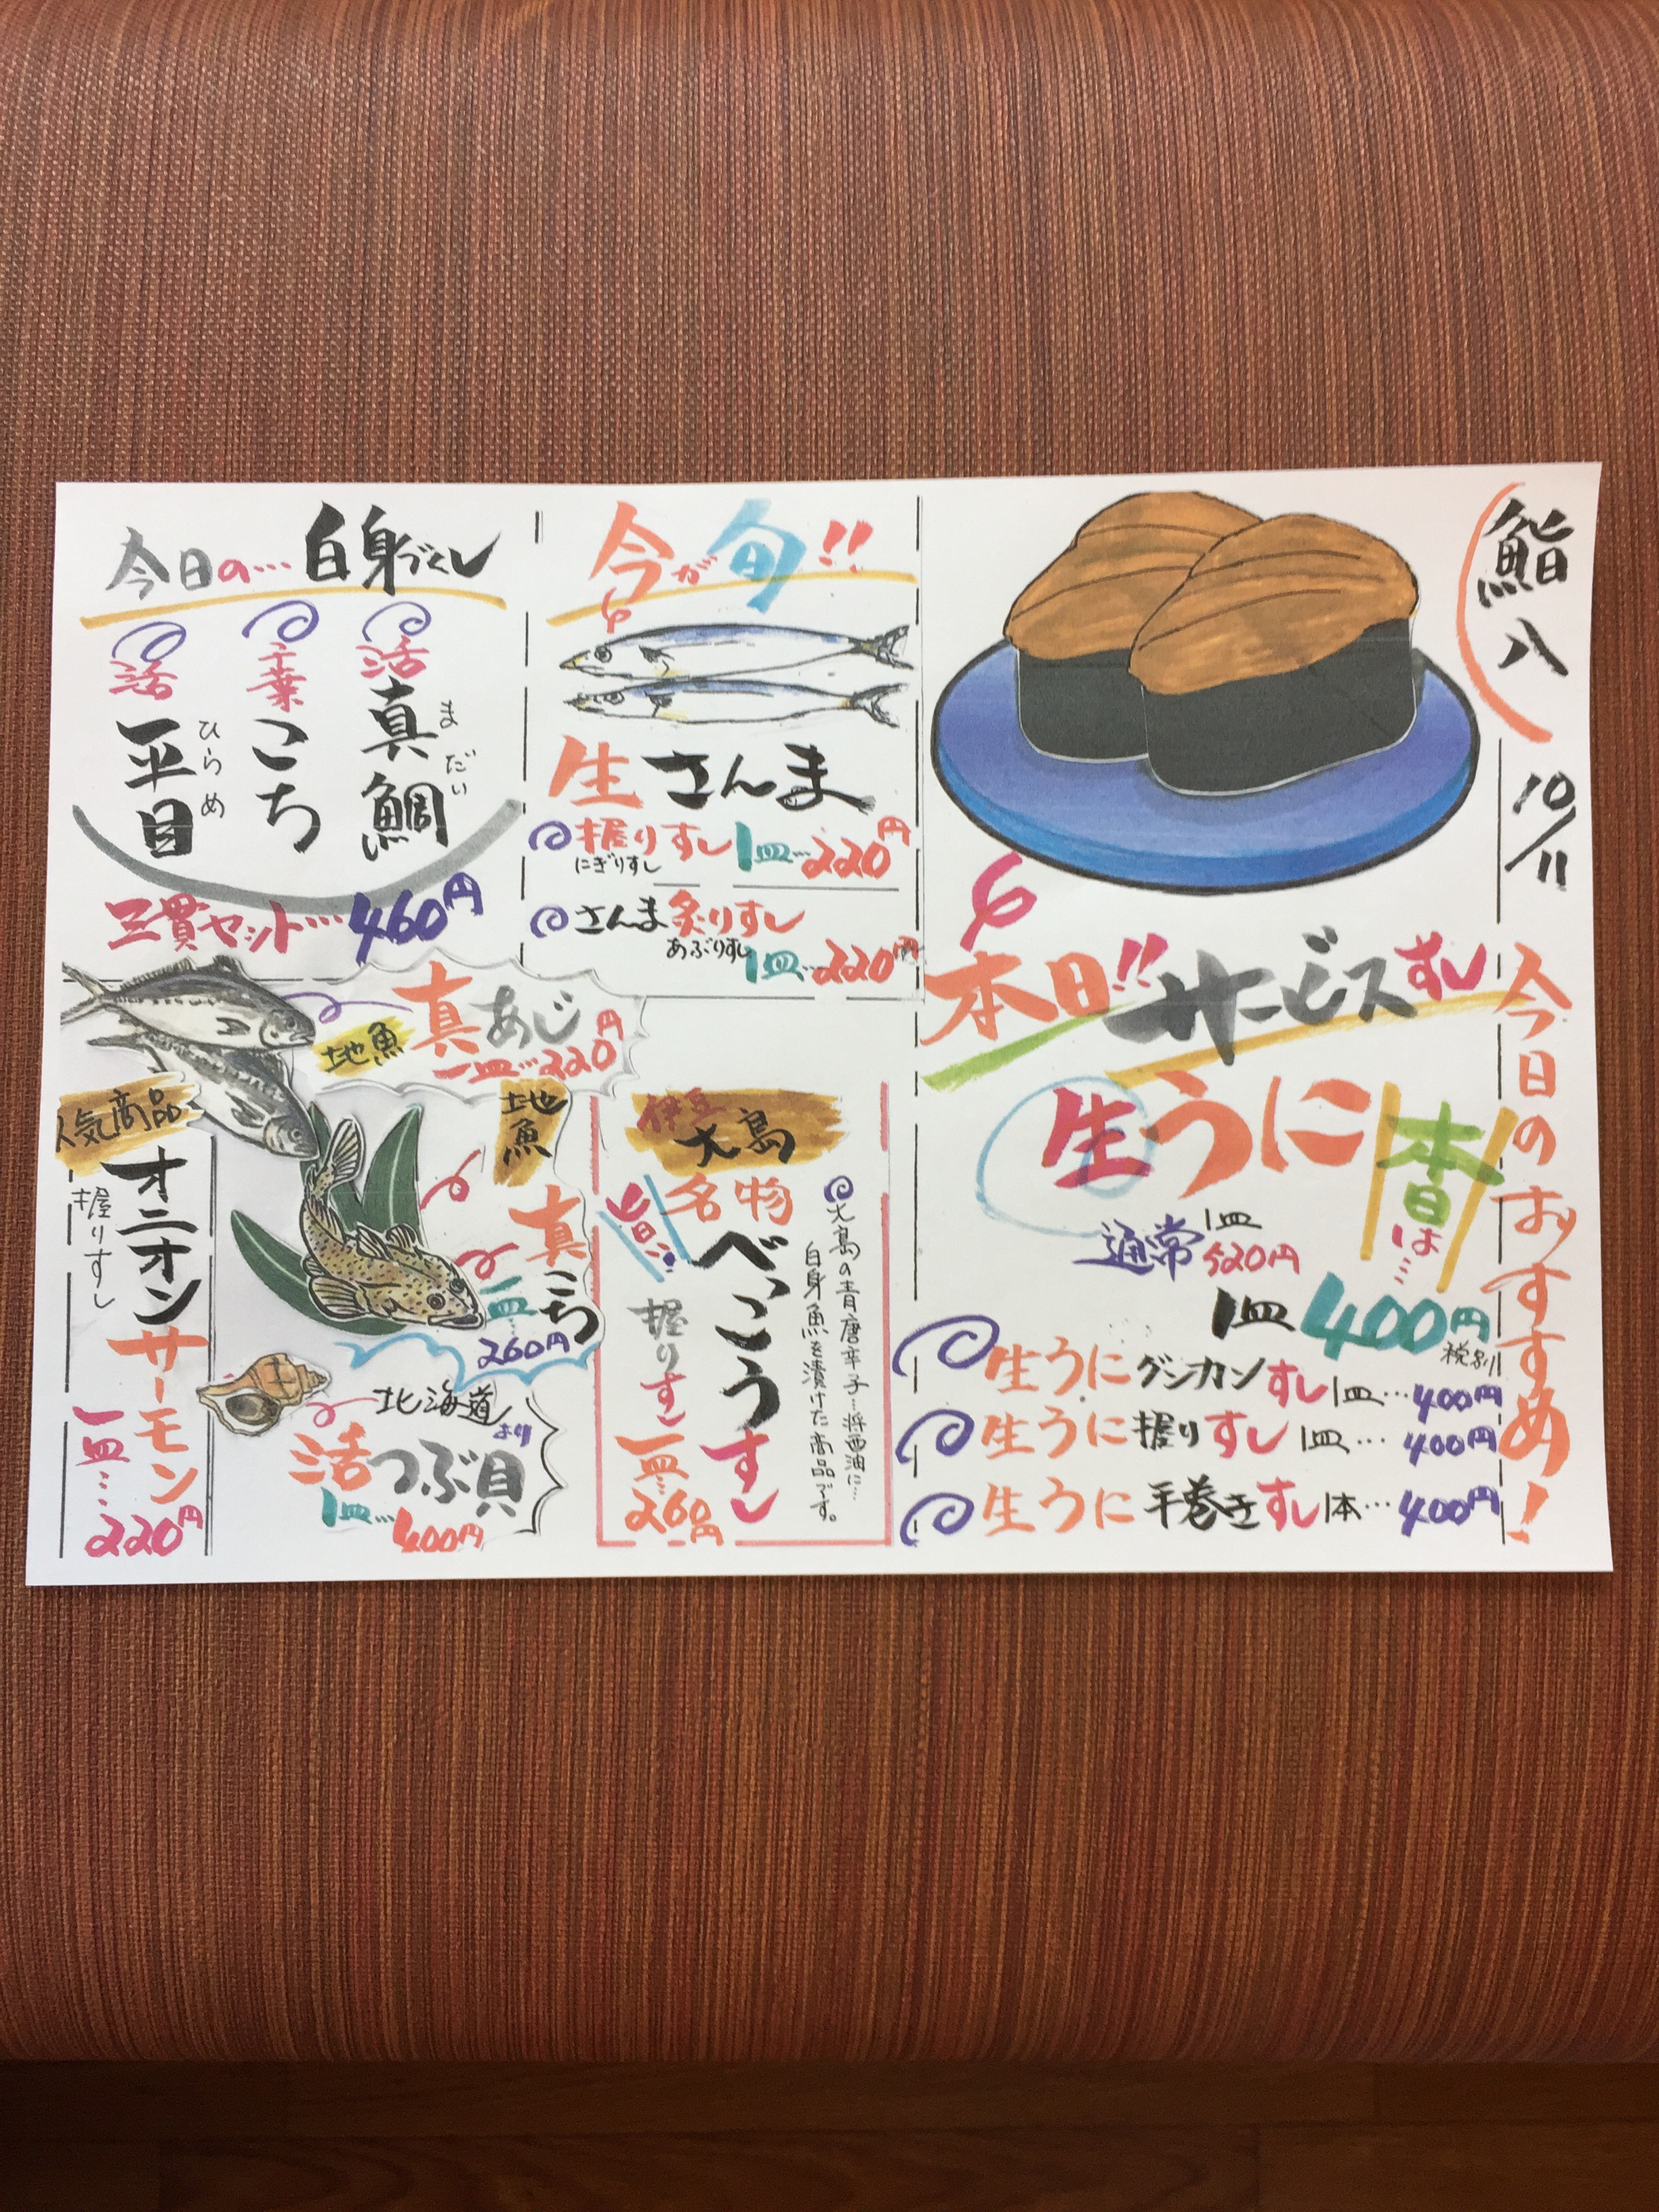 鮨八
10/11
今日のおすすめ!
本日!!サービスすし
生うに
本日は…
通常1皿520円
1皿400円
税別
生うにグンカンすし1皿…400円
生うに握りすし1皿…400円
生うに手巻きすし1本…400円
今が旬!!
生さんま
握りすし1皿…220円
にぎりすし
さんま炙りすし
あぶりすし
1皿…220円
今日の…白身づくし
活真鯛
まだい
千葉こち
活平目
ひらめ
三貫セット…460円
地魚
真あじ
一皿…220円
伊豆大島
名物
べっこうすし
旨い
握りすし一皿…260円
大島の青唐辛子…醤油に…
白身魚を漬けた商品です。
地魚
真こち
一皿…
260円
北海道より
活つぶ貝
1皿…400円
人気商品
オニオンサーモン
握りすし
一皿…220円